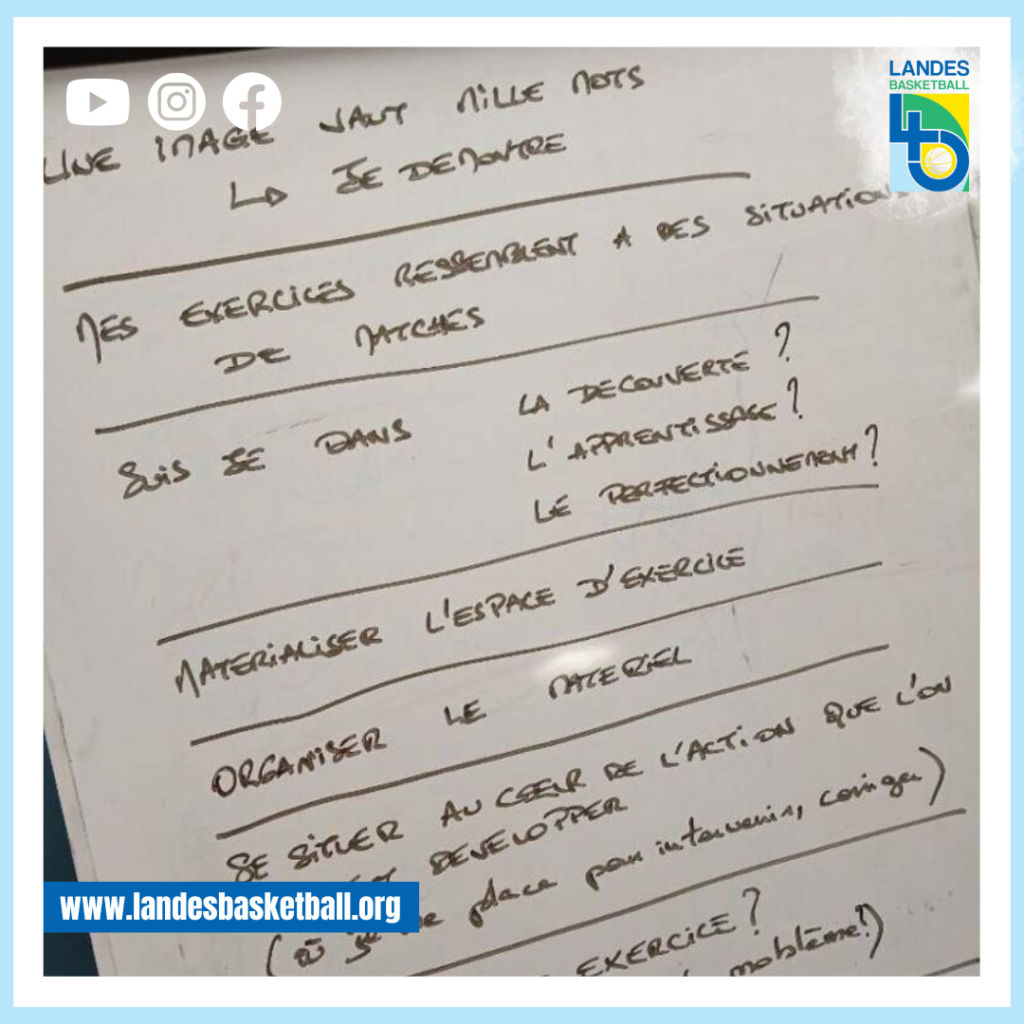 LANDES
BASKETBALL
UNE IMAGE VAUT MILLE MOTS
JE DEMONTRE
MES EXERCICES RESSEMBLENT A DES SITUATIONS
DE MATCHES
SUIS JE DANS LA DECOUVERTE ?
L'APPRENTISSAGE ?
LE PERFECTIONNEMENT ?
MATERIALISER L'ESPACE D'EXERCICE
ORGANISER LE MATERIEL
SE SITUER AU CŒUR DE L'ACTION QUE L'ON
DEVELOPPER
(où je me place pour intervenir, corriger)
EXERCICE ?
problème?)
www.landesbasketball.org